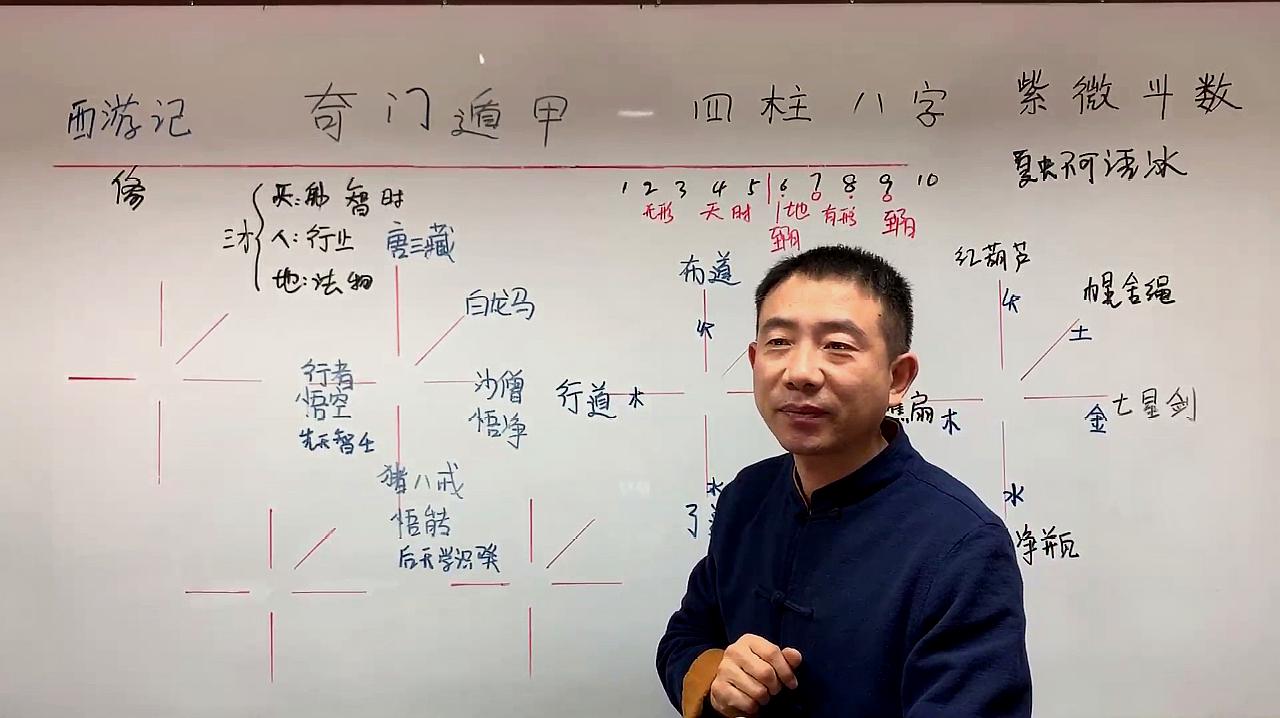 西游记 奇门遁甲 — 四柱八字 紫微斗数
修
三才
天: 智时
人:行止
地:法物
1 2 3 4 5 6 7 8 9 10
无形 天时 地 有形
夏虫不可语冰
唐三藏
白龙马
行者
悟空
先天智
沙僧
悟净
猪八戒
悟能
后天学识
布道
火
行道 木
水
了
扇
木
红葫芦
火
幌金绳
土
金 七星剑
水
净瓶